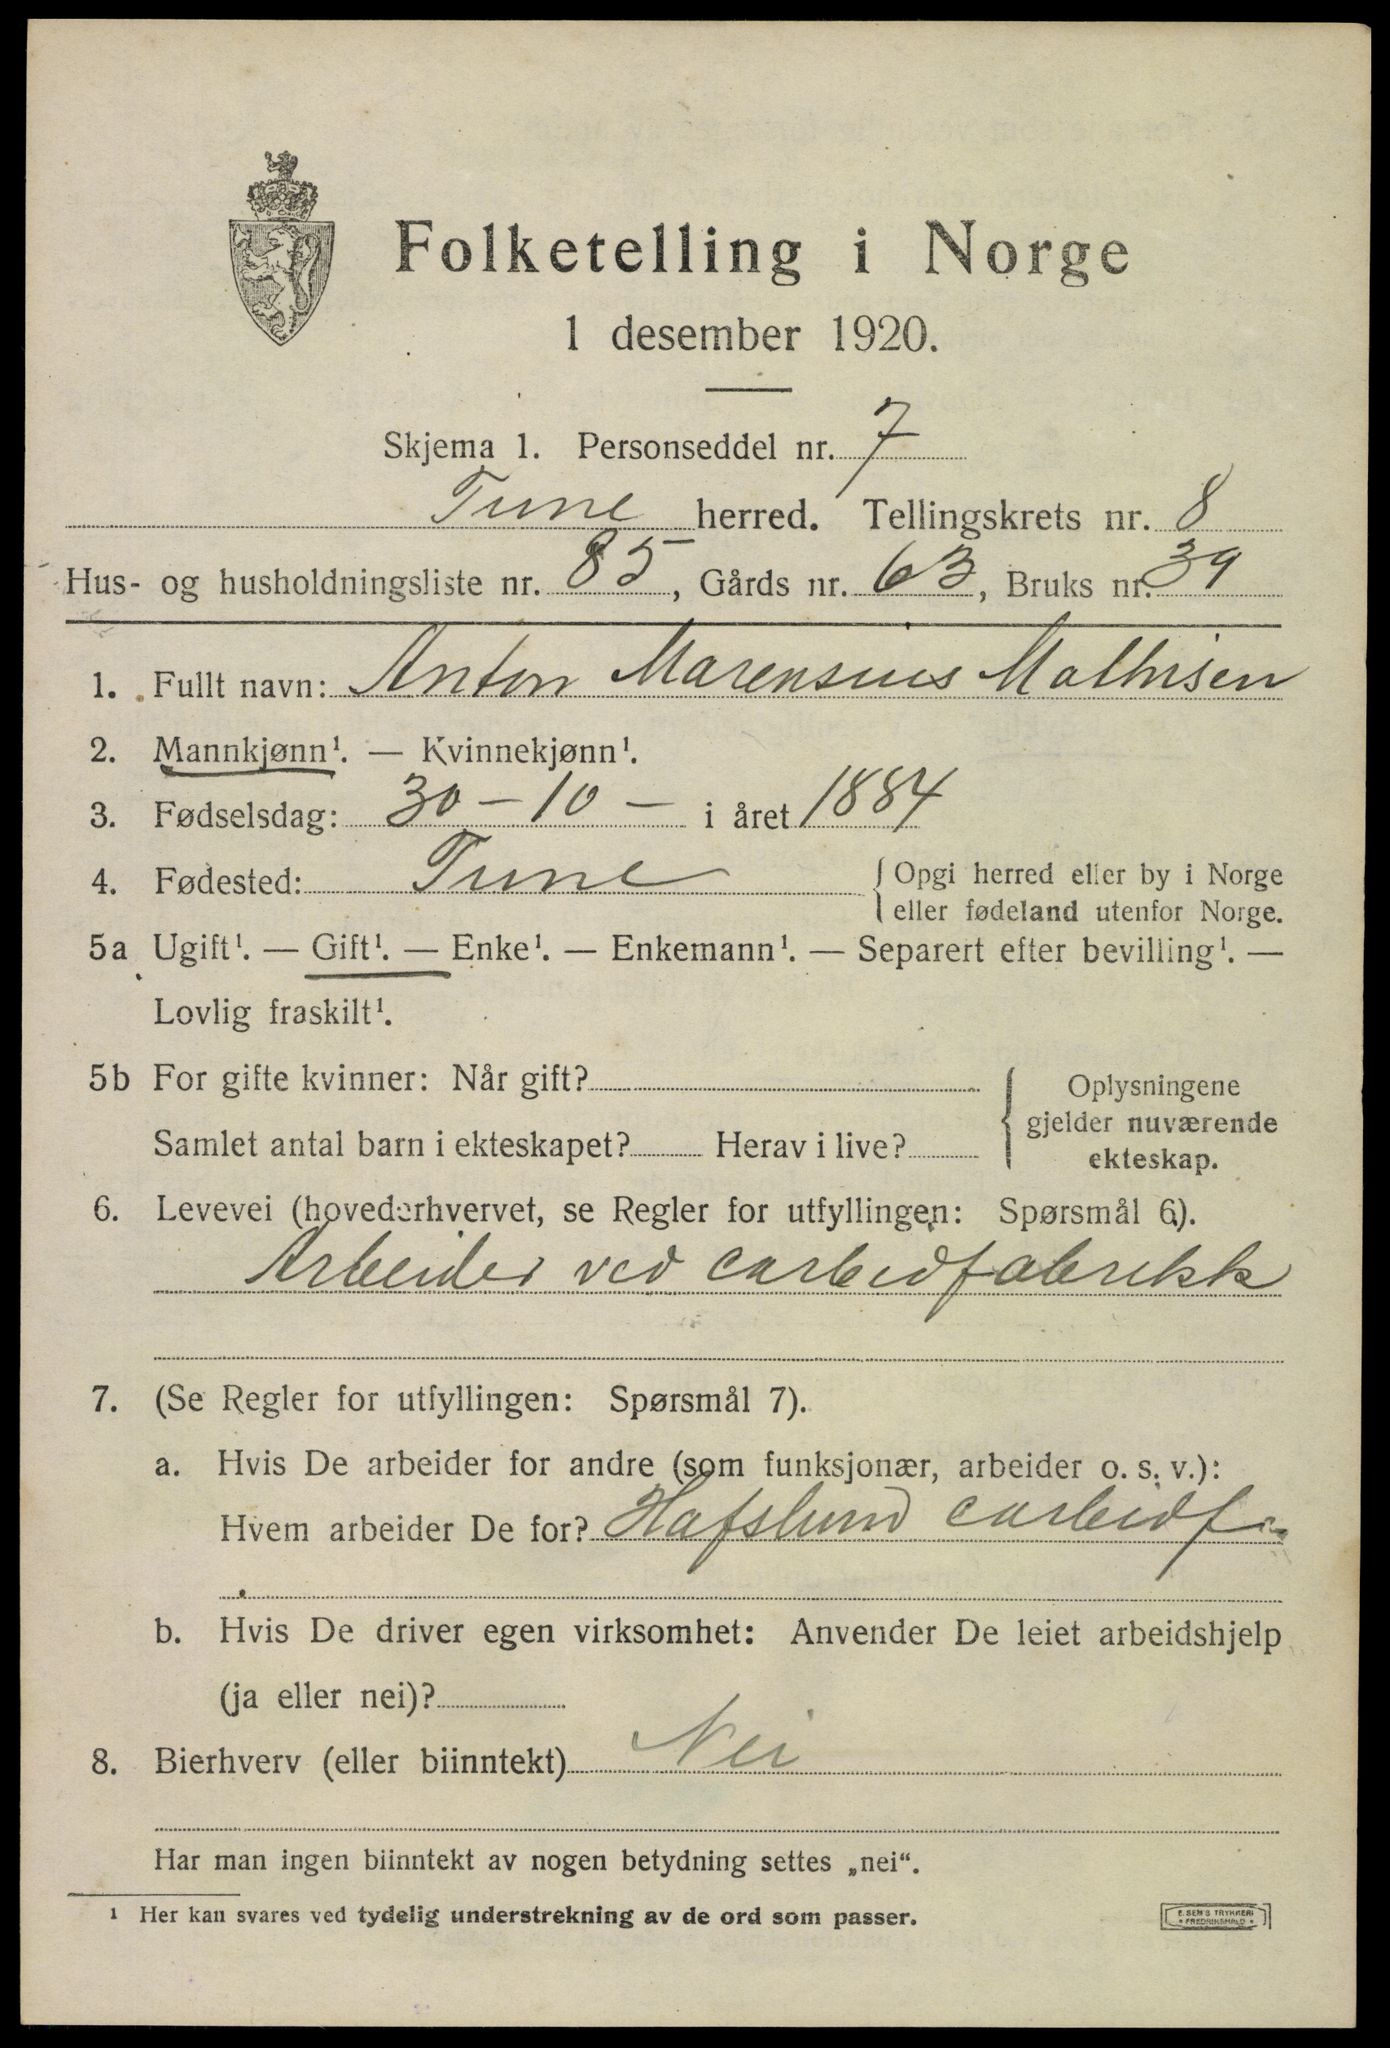 Folketelling i Norge
1 desember 1920.
Skjema 1. Personseddel nr. 7
Tune herred. Tellingskrets nr. 8
Hus- og husholdningsliste nr. 85, Gårds nr. 63, Bruks nr. 39
1. Fullt navn: Anton Marensius Mathisen
2. Mannkjønn¹. — Kvinnekjønn¹.
3. Fødselsdag: 30 - 10 - i året 1884
4. Fødested: Tune { Opgi herred eller by i Norge
eller fødeland utenfor Norge.
5a Ugift¹. — Gift¹. — Enke¹. — Enkemann¹. — Separert efter bevilling¹. —
Lovlig fraskilt¹.
5b For gifte kvinner: Når gift?
Samlet antal barn i ekteskapet? Herav i live?
{ Oplysningene
gjelder nuværende
ekteskap.
6. Levevei (hovederhvervet, se Regler for utfyllingen: Spørsmål 6).
Arbeider ved carbidfabrikk
7. (Se Regler for utfyllingen: Spørsmål 7).
a. Hvis De arbeider for andre (som funksjonær, arbeider o. s. v.):
Hvem arbeider De for? Hafslund carbidf
b. Hvis De driver egen virksomhet: Anvender De leiet arbeidshjelp
(ja eller nei)?
8. Bierhverv (eller biinntekt) Nei
Har man ingen biinntekt av nogen betydning settes „nei“.
¹ Her kan svares ved tydelig understrekning av de ord som passer.
E. SEM'S TRYKKERI
• FREDRIKSHALD •